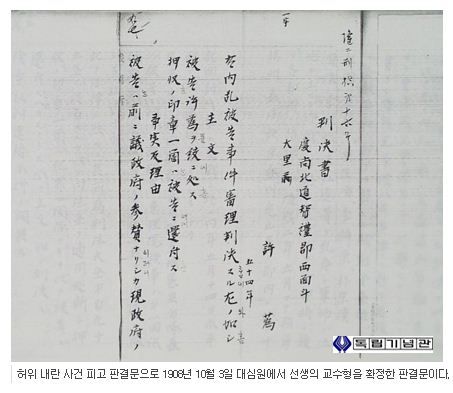 刑控第十六
判決書
慶尚北道智禮郡西面斗
大里
許蔿
五十四年
右内乱被告事件審理判決スル左ノ如シ
主文
被告許蔿ヲ絞ニ処ス
押収ノ印章一箇ハ被告ニ還付ス
事実及理由
被告ハ前ニ議政府ノ参賛ナリシカ現政府ノ
독립기념관
허위 내란 사건 피고 판결문으로 1908년 10월 3일 대심원에서 선생의 교수형을 확정한 판결문이다.